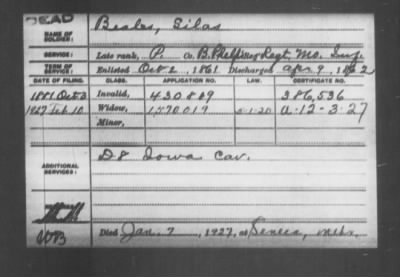 DEAD
NAME OF SOLDIER: Beales, Silas
SERVICE: Late rank, P. Co. B. Phelps' Regt, Mo. Inf.
TERM OF SERVICE: Enlisted Oct 2, 1861 Discharged Apr. 9, 1862
DATE OF FILING. CLASS. APPLICATION NO. LAW. CERTIFICATE NO.
1881 Oct 3 Invalid, 430829 386,536
1927 Feb 10 Widow, 1570019 5-1-20 A-12-3-27
Minor,
ADDITIONAL SERVICES: D 8 Iowa Cav.
Died Jan. 7, 1927, at Seneca, Nebr.